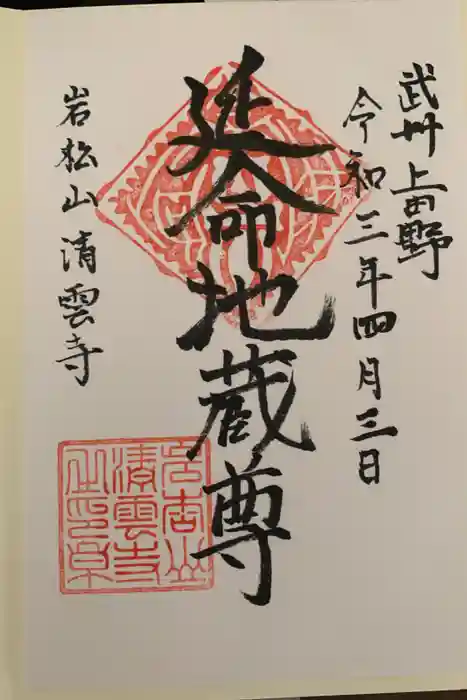 武州上田野
令和三年四月三日
延命地蔵尊
岩松山清雲寺